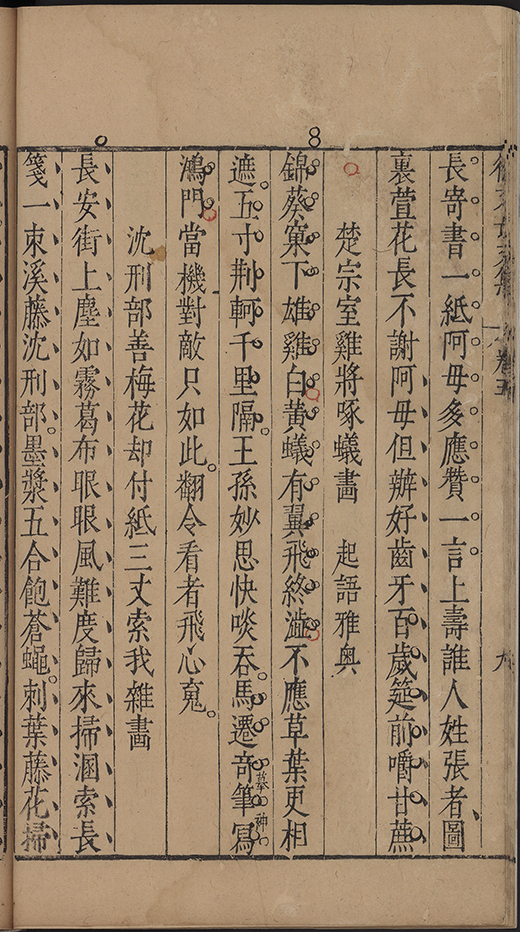 徐文長文集 卷五 九
長寄書一紙阿母多應贊一言上壽誰人姓張者圖
裏萱花長不謝阿母但辦好齒牙百歲筵前嚼甘蔗
楚宗室雞將啄蟻畫 起語雅奥
錦葵窠下雄雞白黄蟻有翼飛終澁不應草葉更相
遮五寸荆軻千里隔王孫妙思快啖吞馬遷奇筆寫 摹神
鴻門當機對敵只如此翻令看者飛心䰟
沈刑部善梅花却付紙三丈索我雜畫
長安街上塵如霧葛布眼眼風難度歸來掃溷索長
箋一束溪藤沈刑部墨漿五合飽蒼蠅刺葉藤花掃